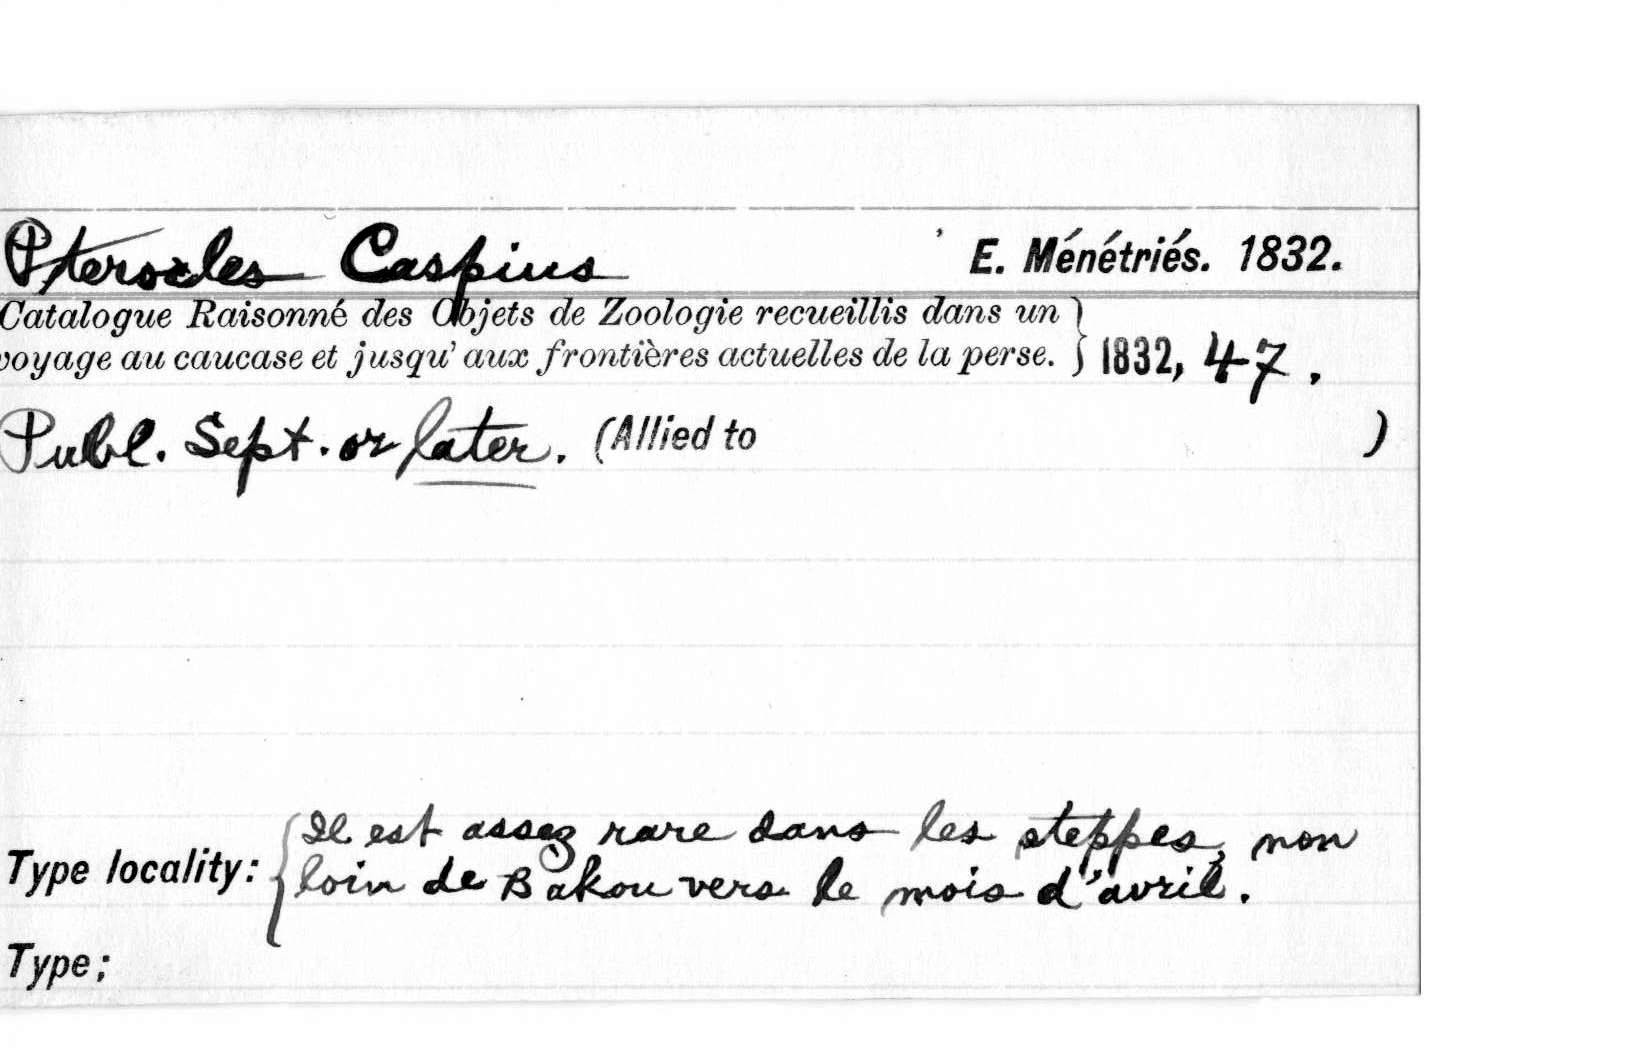 Pterocles Caspius E. Ménétriés. 1832.
Catalogue Raisonné des Objets de Zoologie recueillis dans un
voyage au caucase et jusqu' aux frontières actuelles de la perse. } 1832, 47.
Publ. Sept. or later. (Allied to )
Il est assez rare dans les steppes, non
Type locality: { loin de Bakou vers le mois d'avril.
Type;